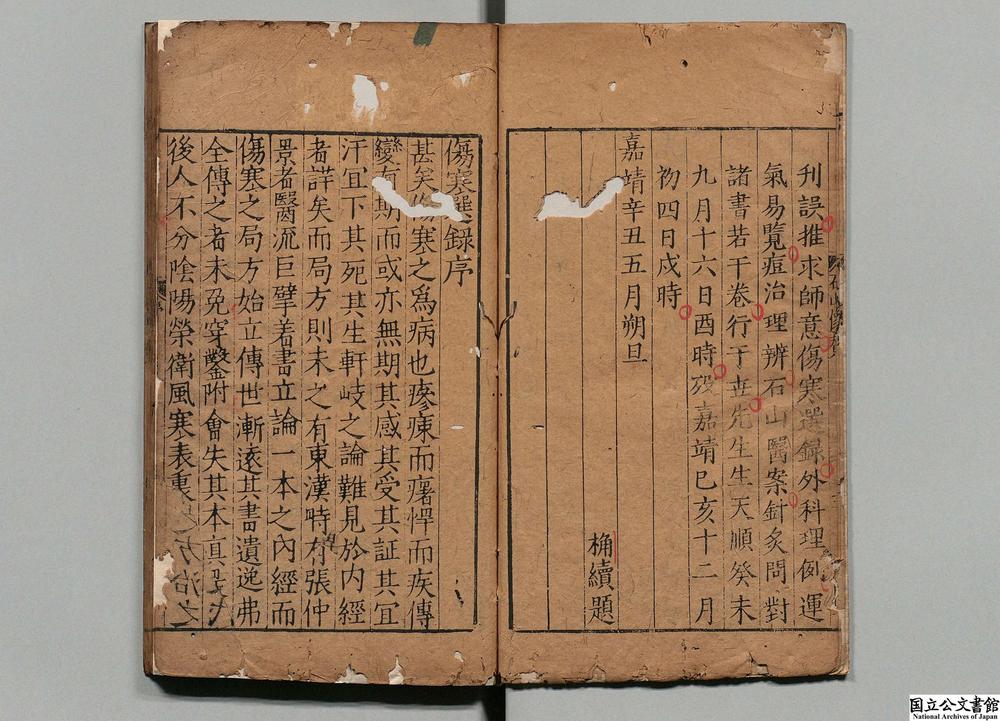 刋誤推求師意傷寒選録外科理例運
氣易覽痘治理辨石山醫案針炙問對
諸書若干卷行于世先生生天順癸未
九月十六日酉時殁嘉靖巳亥十二月
初四日戍時
嘉靖辛丑五月朔旦
桷續題
傷寒選録序
甚矣傷寒之爲病也瘮㾐而㿋悍而疾傳
變有期而或亦無期其感其受其証其宜
汗宜下其死其生軒岐之論難見於内經
者詳矣而局方則未之有東漢時有張仲
景者醫流巨擘着書立論一本之内經而
傷寒之局方始立傳世漸逺其書遺逸弗
全傳之者未免穿鑿附會失其本真
後人不分陰陽榮衛風寒表裏方治之
国立公文書館
National Archives of Japan